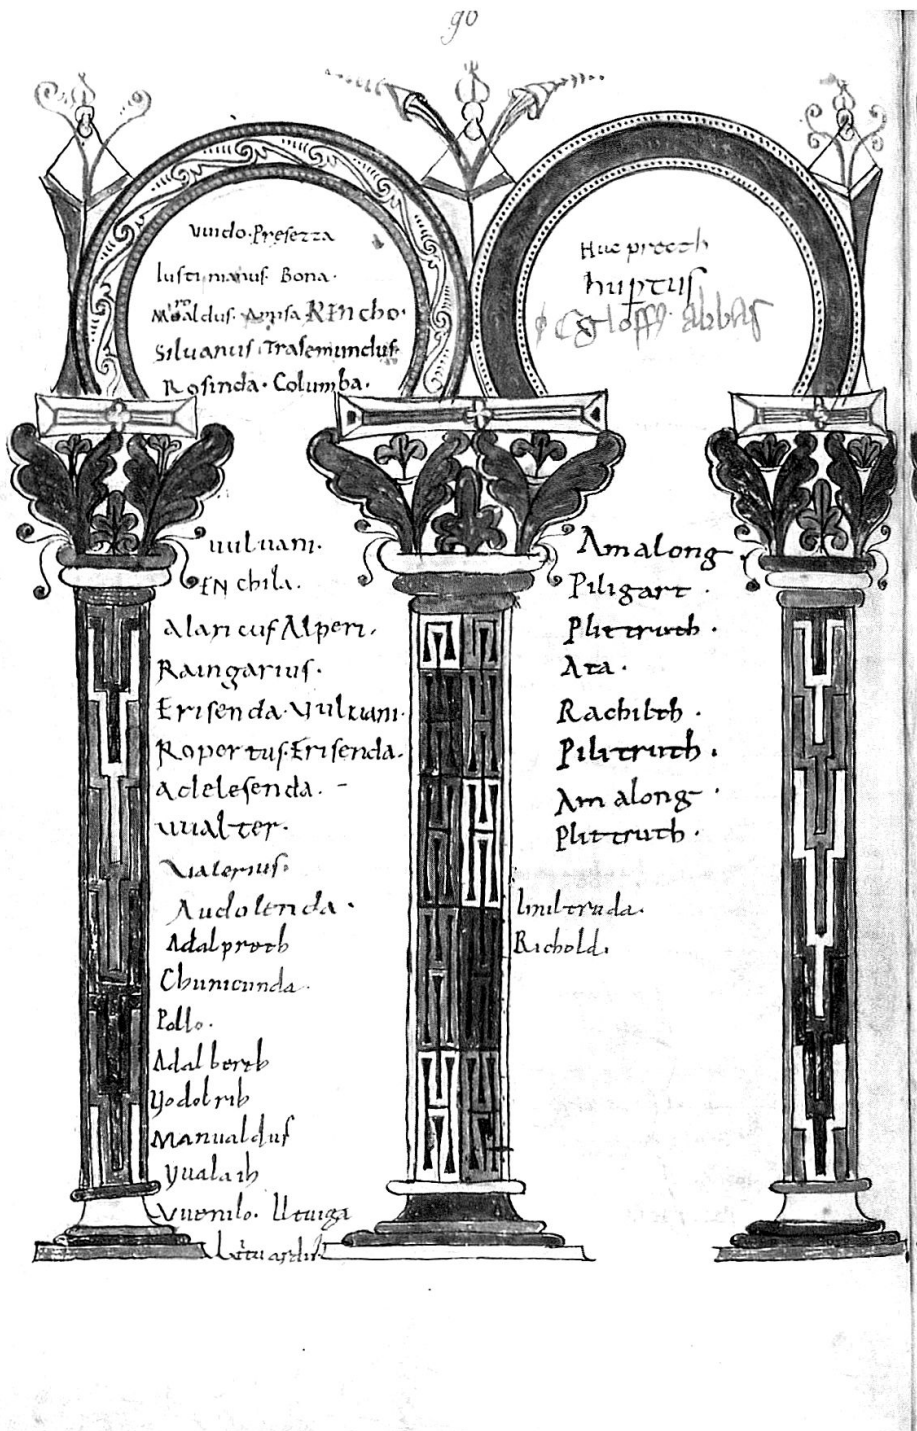 90
Vuido · Presezza
Iustinianus · Bona ·
Moaldus · Ansa RINcho ·
Siluanus · Trasemundus
Rosinda · Columba ·
uuluam ·
ENchila ·
alaricus Alperi ·
Raingarius ·
Erisenda · Vuluuam ·
Ropertus · Erisenda ·
adelesenda · -
uualter ·
Valerius ·
Audolenda ·
Adalpreth
Chunicunda ·
Pollo ·
Adalbreth
Yodolrih
Manualdus
Yualaih
Vuenilo · Lltuiga
Huc preeth
huptus
Egloffs abbas
Amalong ·
Piligart ·
Plittruth ·
Ata ·
Rachilth ·
Pilitruth ·
Amalong ·
Plittruth ·
Imiltruda ·
Richold ·